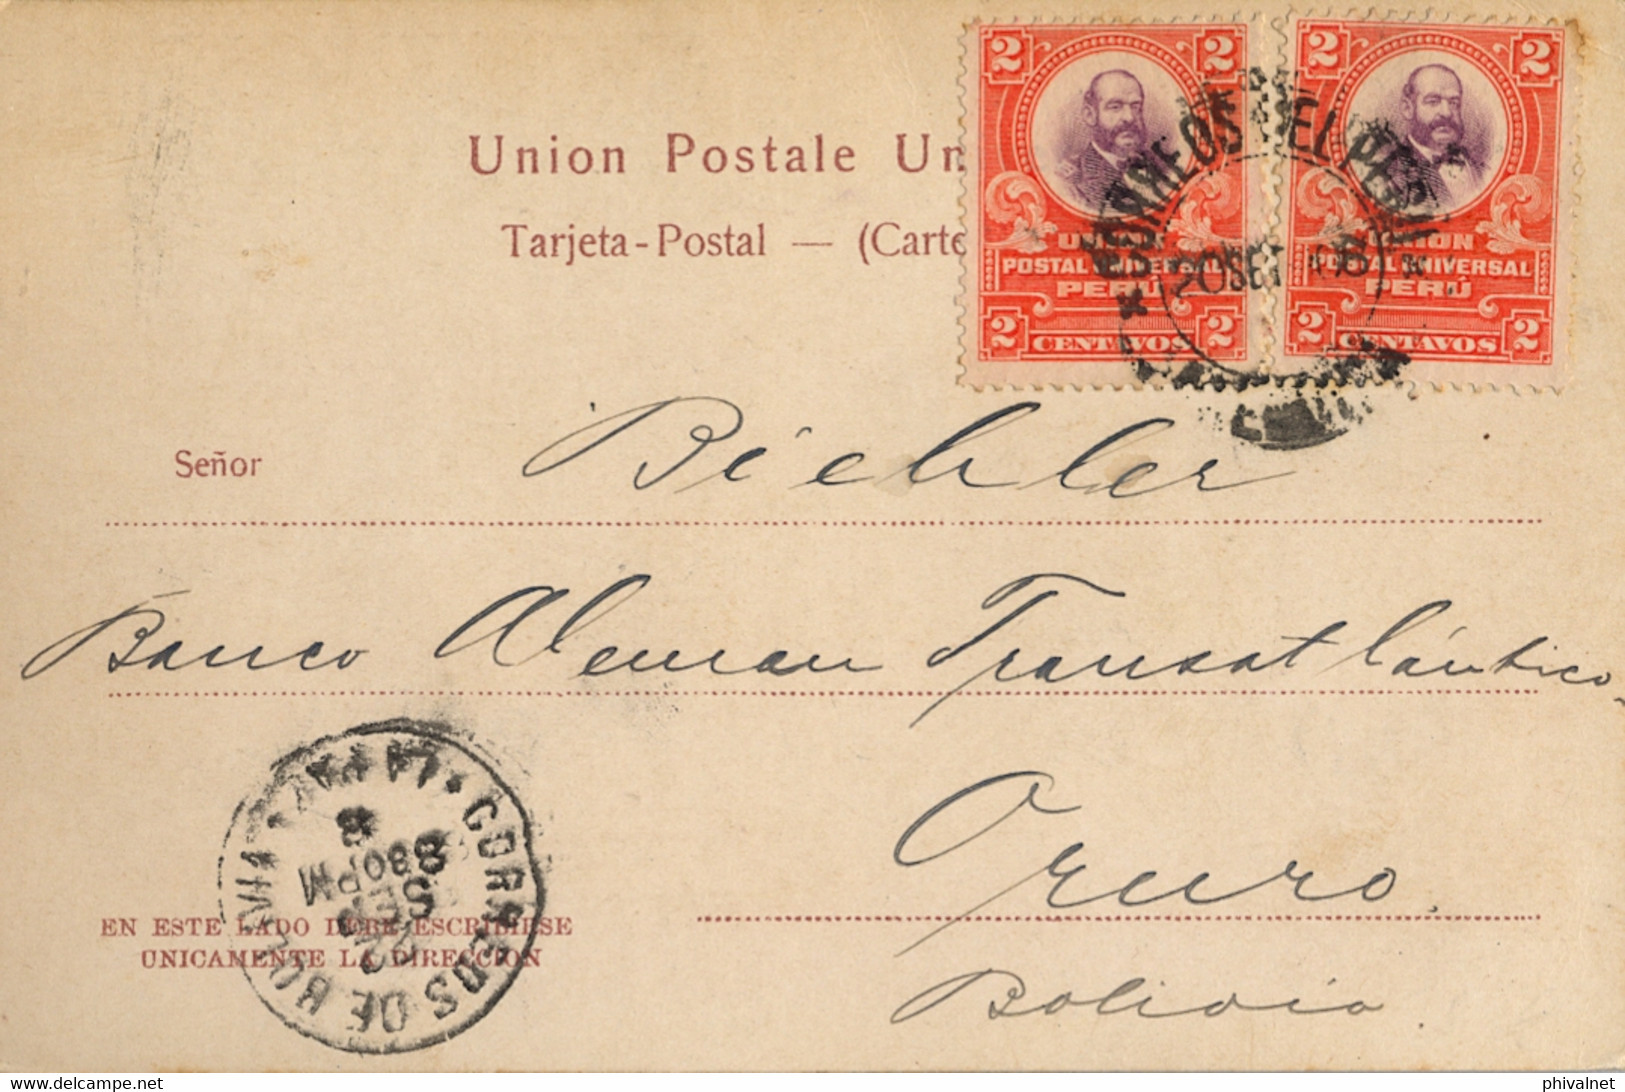 2 2 2 2
Union Postale Un
Tarjeta-Postal — (Carte
CORREOS DEL PERU
UNION UNION
POSTAL UNIVERSAL POSTAL UNIVERSAL
PERÚ PERÚ
20 SET
2 CENTAVOS 2 2 CENTAVOS 2
Señor Biehler
Banco Aleman Transatlántico
Oruro.
Bolivia.
CORREOS DE BOLIVIA
LA PAZ
830PM
EN ESTE LADO DEBE ESCRIBIRSE
UNICAMENTE LA DIRECCION
delcampe.net
phivalnet